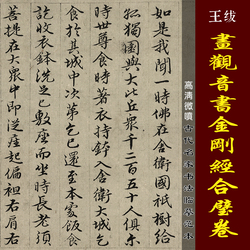 王绂
畫觀音書金剛經合璧卷
高清微噴
如是我聞一時佛在舍衛國祇樹給
孤獨園與大比丘眾千二百五十人俱爾
時世尊食時著衣持鉢入舍衛大城乞
食於其城中次第乞已還至本處飯食
訖收衣鉢洗足已敷座而坐時長老須
菩提在大眾中即從座起偏袒右肩右